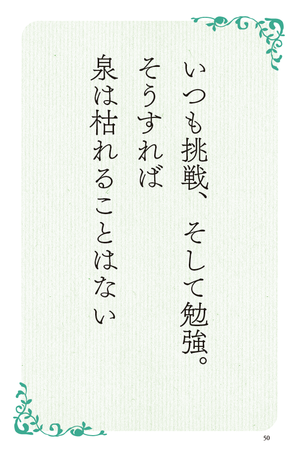 いつも挑戦、そして勉強。
そうすれば
泉は枯れることはない
50